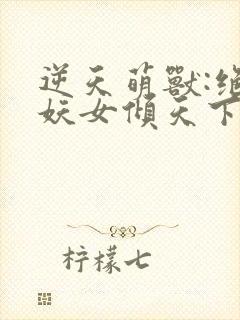 逆天萌獸:絕
妖女傾天下
柠檬七